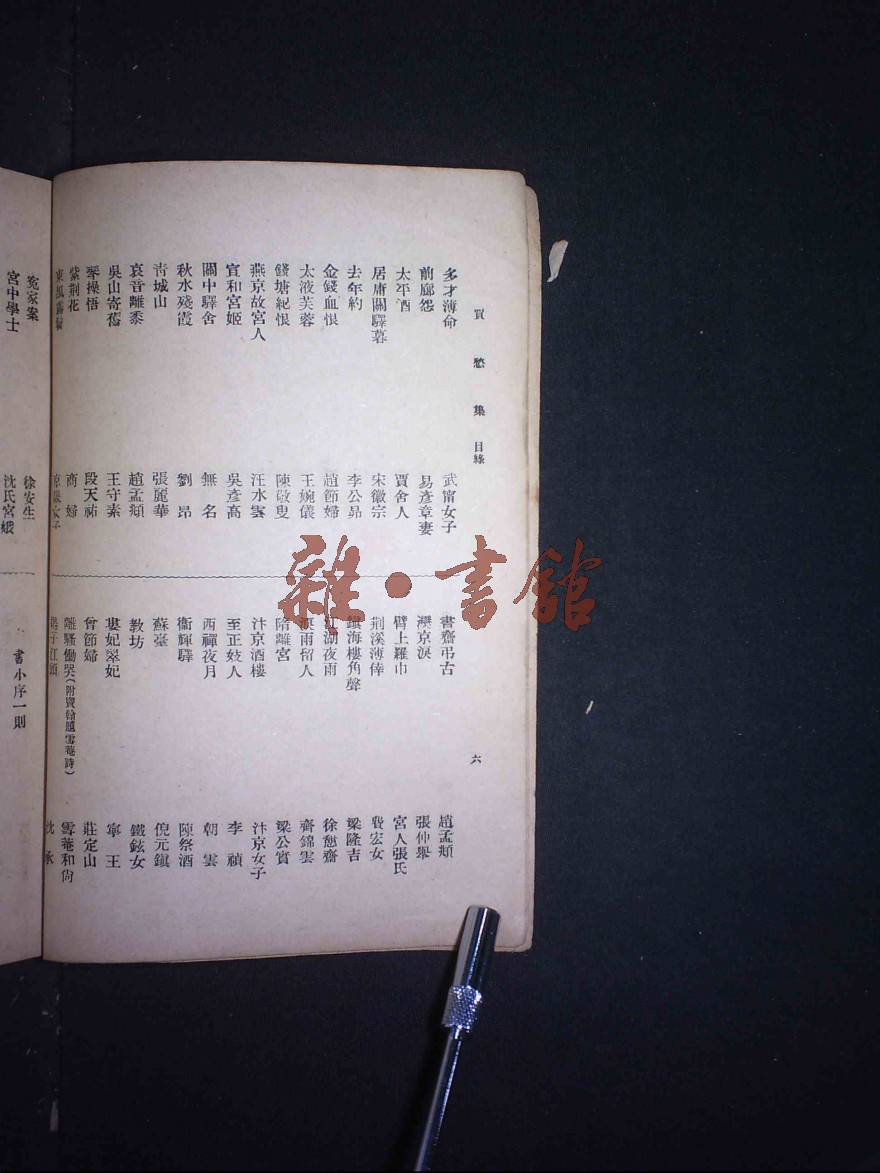 買愁集 目錄
六
多才薄命 武甯女子
前廊怨 易彥章妻
太平酒 賈舍人
居庸關驛暮 宋徽宗
去年約 李公昂
金錢血恨 趙節婦
太液芙蓉 王婉儀
錢塘紀恨 陳敬叟
燕京故宮人 汪水雲
宣和宮姬 吳彥高
關中驛舍 無名
秋水殘霞 劉昂
青城山 張麗華
哀音離黍 趙孟頫
吳山寄舊 王守素
琴操悟 段天祐
紫荊花 商婦
東風
書齋弔古 趙孟頫
灤京淚 張仲舉
臂上羅巾 宮人張氏
荆溪薄倖 費宏女
鎮海樓角聲 梁隆吉
江湖夜雨 徐憩齋
淚雨留人 齊錦雲
隋離宮 梁公實
汴京酒樓 汴京女子
至正妓人 李禎
西禪夜月 朝雲
衞輝驛 陳祭酒
蘇臺 倪元鎮
教坊 鐵鉉女
婁妃翠妃 寧王
曾節婦 莊定山
離騷慟哭 雪菴和尙
沈承
冤家案 徐安生
宮中學士 沈氏宮娥
書小序一則
雜·書館